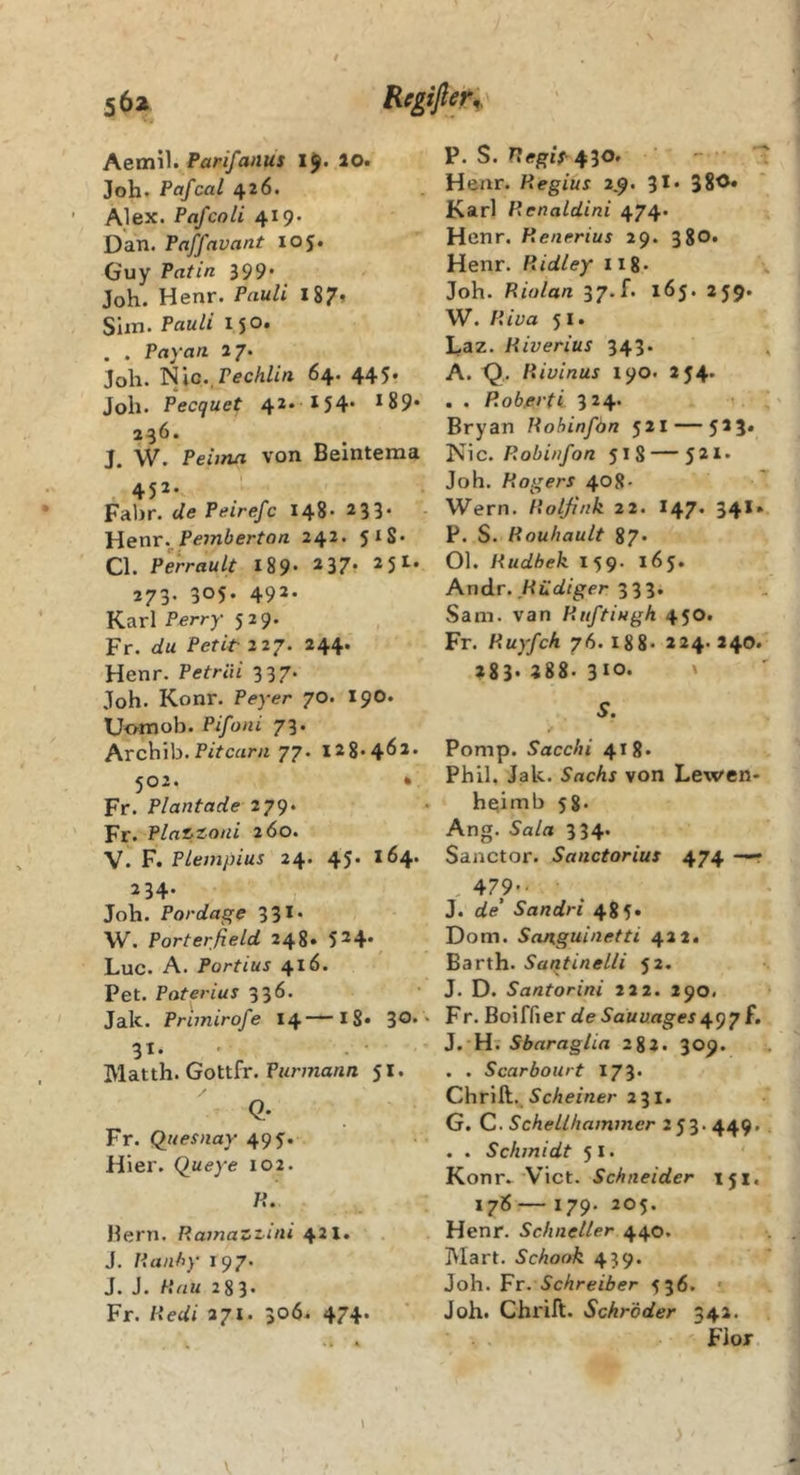 562 Regiſter.
Aemil. Pariſanus 19. 20.
Joh. Paſcal 426.
Alex. Paſcoli 419.
Dan. Paſſavant 105.
Guy Patin 399.
Joh. Henr. Pauli 187.
Sim. Pauli 150.
. . Payan 27.
Joh. Nic. Pechlin 64. 445.
Joh. Pecquet 42. 154. 189.
236.
J. W. Peima von Beintema
452.
Fabr. de Peireſc 148. 233.
Henr. Pemberton 242. 518.
Cl. Perrault 189. 237. 251.
273. 305. 492.
Karl Perry 529.
Fr. du Petit 227. 244.
Henr. Peträi 337.
Joh. Konr. Peyer 70. 190.
Uomob. Piſoni 73.
Archib. Pitcarn 77. 128. 462.
502.
Fr. Plantade 279.
Fr. Plazzoni 260.
V. F. Plempius 24. 45. 164.
234.
Joh. Pordage 331.
W. Porterfield 248. 524.
Luc. A. Portius 416.
Pet. Poterius 336.
Jak. Primiroſe 14—18. 30.
31.
Matth. Gottfr. Purmann 51.
Q.
Fr. Quesnay 495.
Hier. Queye 102.
R.
Bern. Ramazzini 421.
J. Ranby 197.
J. J. Rau 283.
Fr. Redi 271. 306. 474.
P. S. Regis 430.
Henr. Regius 29. 31. 380.
Karl Renaldini 474.
Henr. Renerius 29. 380.
Henr. Ridley 118.
Joh. Riolan 37. f. 165. 259.
W. Riva 51.
Laz. Riverius 343.
A. Q. Rivinus 190. 254.
. . Roberti 324.
Bryan Robinſon 521—523.
Nic. Robinſon 518—521.
Joh. Rogers 408.
Wern. Rolfink 22. 147. 341.
P. S. Rouhault 87.
Ol. Rudbek 159. 165.
Andr. Rüdiger 333.
Sam. van Ruſtingh 450.
Fr. Ruyſch 76. 188. 224. 240.
283. 288. 310.
S.
Pomp. Sacchi 418.
Phil. Jak. Sachs von Lewen-
heimb 58.
Ang. Sala 334.
Sanctor. Sanctorius 474—
479.
J. de' Sandri 485.
Dom. Sanguinetti 422.
Barth. Santinelli 52.
J. D. Santorini 222. 290.
Fr. Boiſſier de Sauvages 497 f.
J. H. Sbaraglia 282. 309.
. . Scarbourt 173.
Chriſt. Scheiner 231.
G. C. Schellhammer 253. 449.
. . Schmidt 51.
Konr. Vict. Schneider 151.
176—179. 205.
Henr. Schneller 440.
Mart. Schook 439.
Joh. Fr. Schreiber 536.
Joh. Chriſt. Schröder 342.
Flor